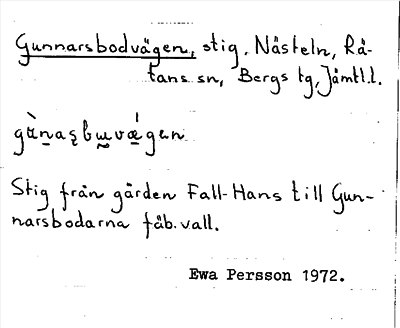 Gunnarsbodvägen, stig. Nästeln, Rä-
tans sn, Bergs tg, Jämtl.l.
gὰn̲as̨bu̲vǽ̲gen
Stig från gården Fall-Hans till Gun-
narsbodarna fäb.vall.
Ewa Persson 1972.